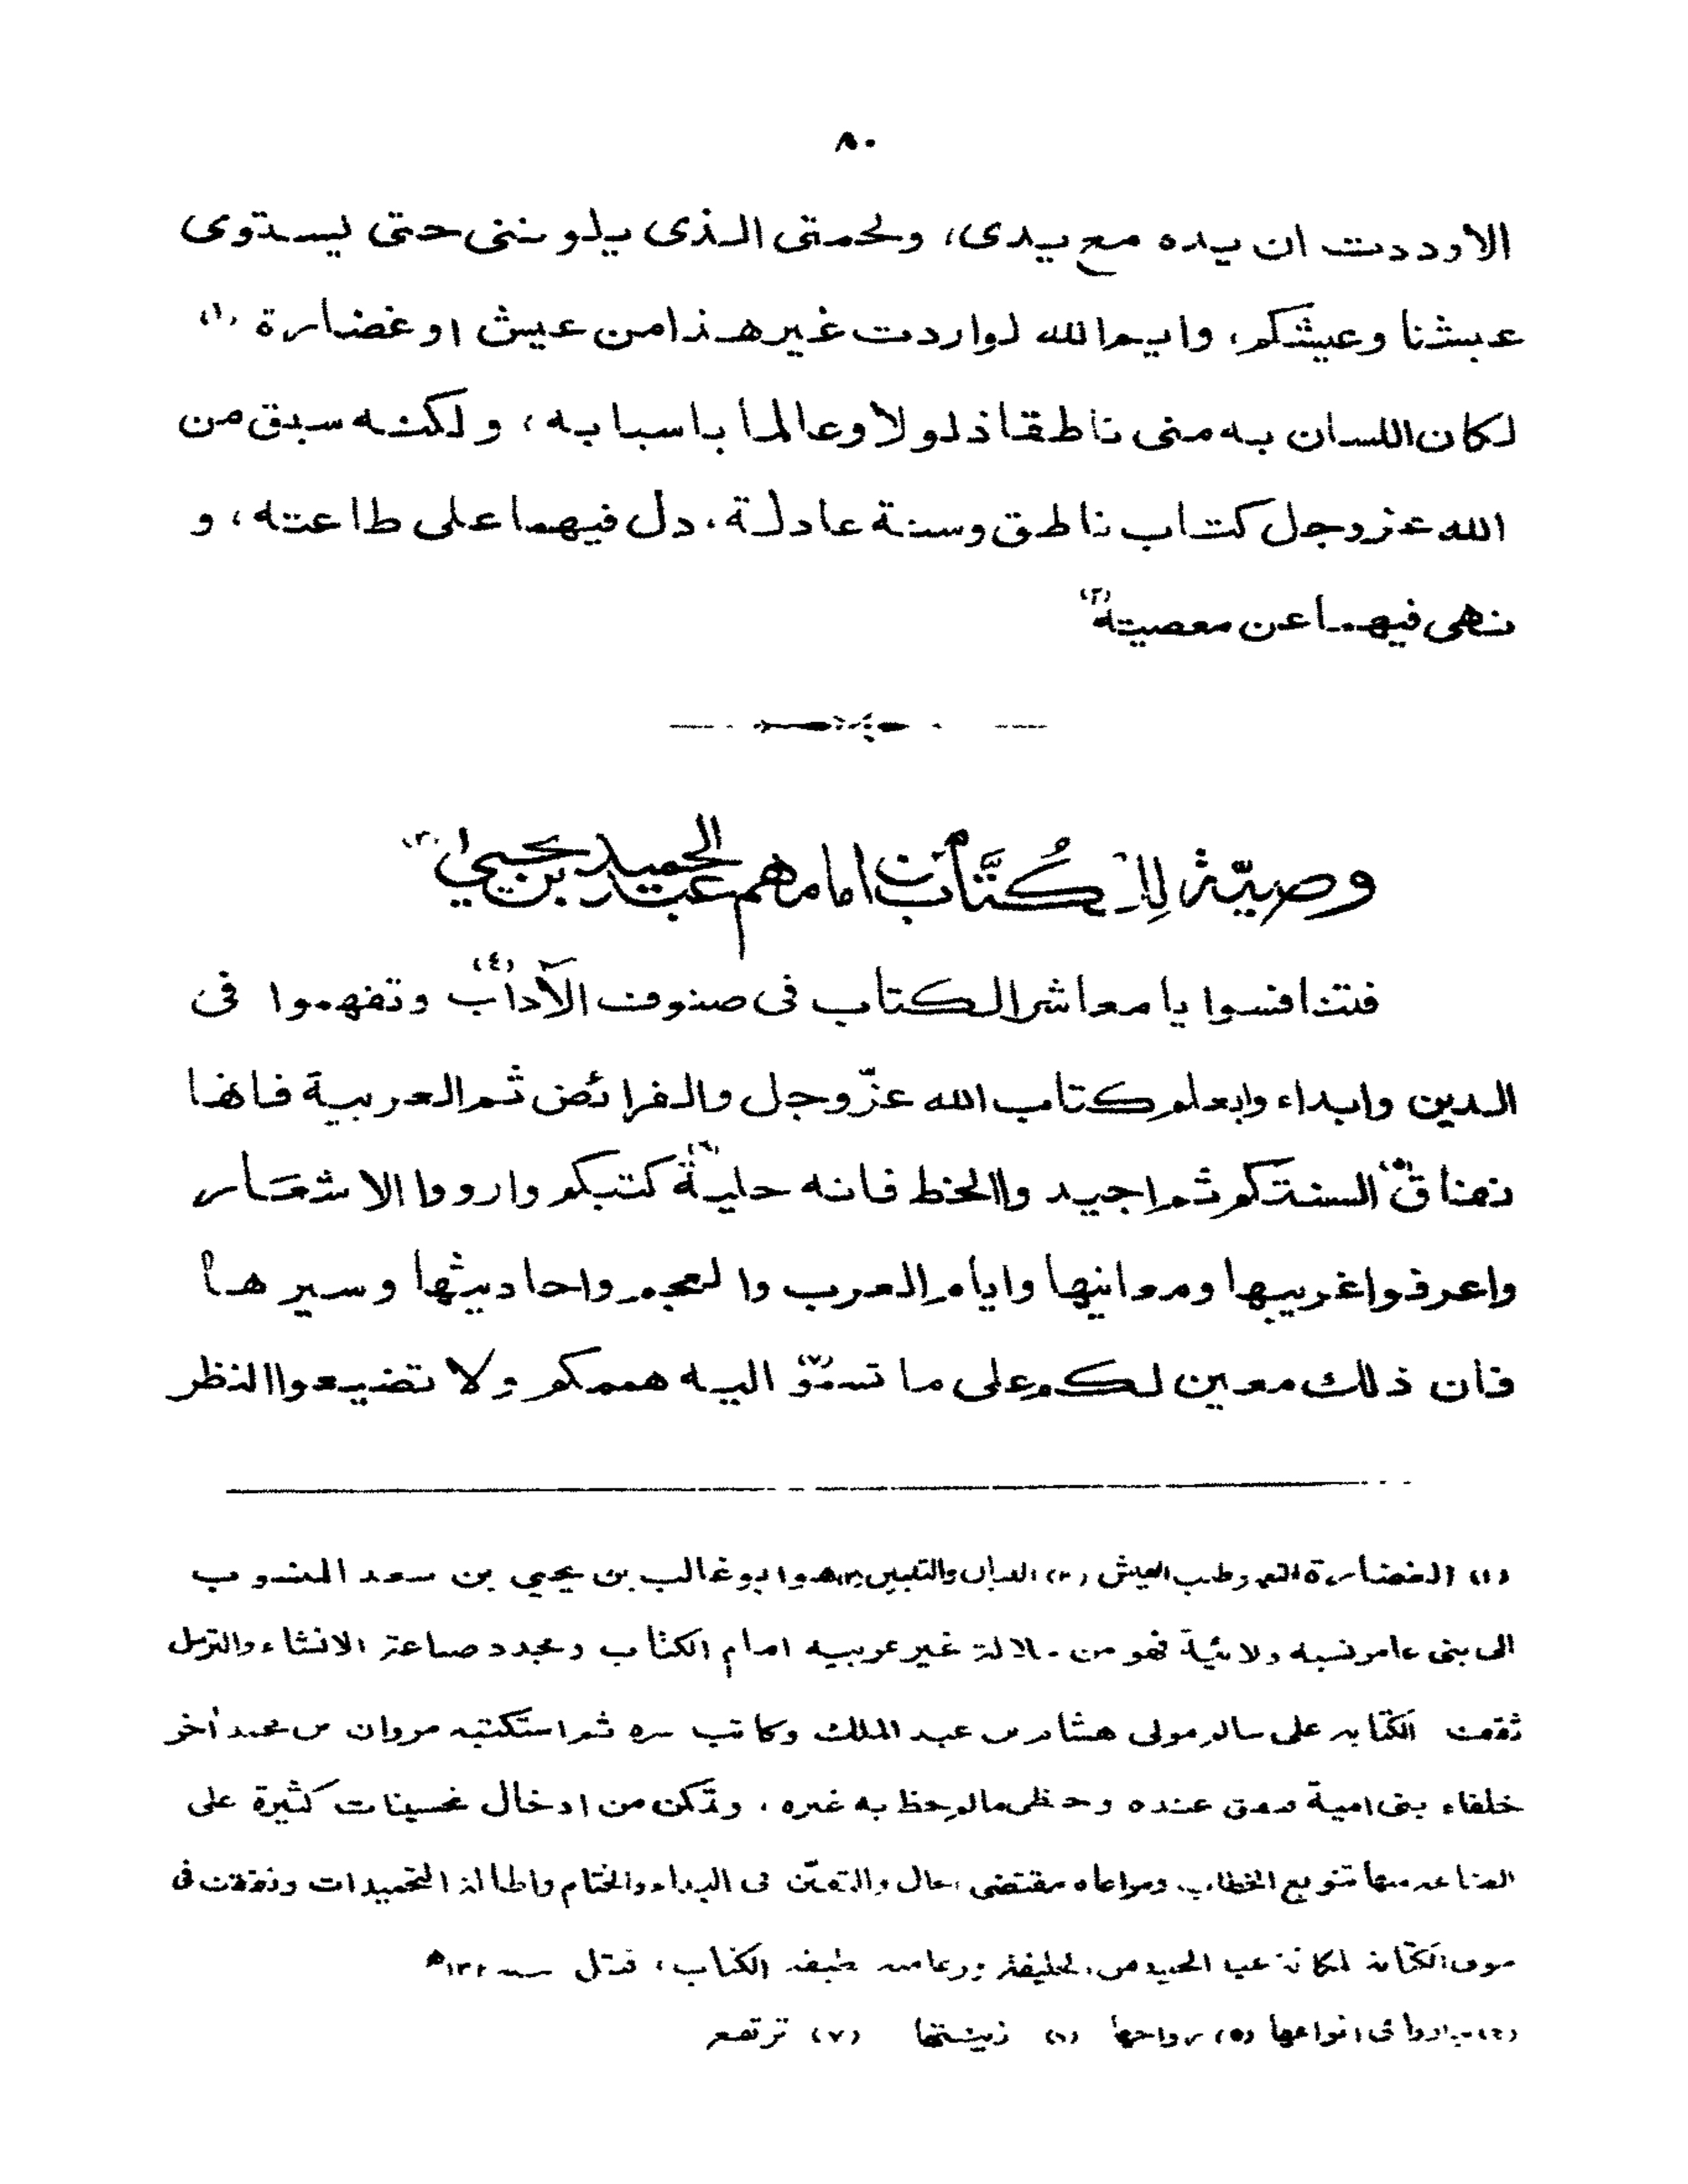 ٨٠
الاوددت ان يده مع يدى، ولحمتى الذى يلوننى حتى يستوى
عيشنا وعيشكم، وايم الله لواردت غير هذا من عيش او غضارة (١)
لكان اللسان به منى ناطقا ذلولا وعالما باسبابه، ولكنه سبق من
الله عزوجل كتاب ناطق وسنة عادلة، دل فيهما على طاعته، و
نهى فيهما عن معصيته (٢)
وصيّة للكُتَّاب من امامهم عبد الحميد بن يحيىٰ (٣)
فتنافسوا يا معاشر الكتاب فى صنوف الآداب (٤) وتفهموا فى
الدين وابداءوا بعلم كتاب الله عزّوجل والفرائض ثم العربية فانها
نفاق (٥) السنتكم ثم اجيدوا الخط فانه حلية (٦) كتبكم وارووا الاشعار
واعرفوا غريبها ومعانيها وايام العرب والعجم واحاديثها وسيرها
فان ذلك معين لكم على ما تسمو (٧) اليه هممكم ولا تضيعوا النظر
(١) الغضارة النعم وطيب العيش (٢) البيان والتبيين (٣) هو ابو غالب بن يحيى بن سعد المنسوب
الى بنى عامر نسبه ولائية فهو من سلالة غير عربيه امام الكتاب ومجدد صناعة الانشاء والترسل
ثقف الكتابه على سالم مولى هشام بن عبد الملك وكاتب سره ثم استكتبه مروان بن محمد آخر
خلفاء بنى امية عنده وحظى مالم يحظ به غيره، وتمكن من ادخال تحسينات كثيرة على
الصناعه منها تنويع الخطاب، ومراعاه مقتضى الحال والتفنن فى البداء والختام واطالة التحميدات وتفننت فى
الكتابة لمكانة عبد الحميد من الخليفة وزعامته طبقة الكتاب، قتل سنه ١٣٢ھ
(٤) تباروا فى انواعها (٥) رواجها (٦) زينتها (٧) ترتفع